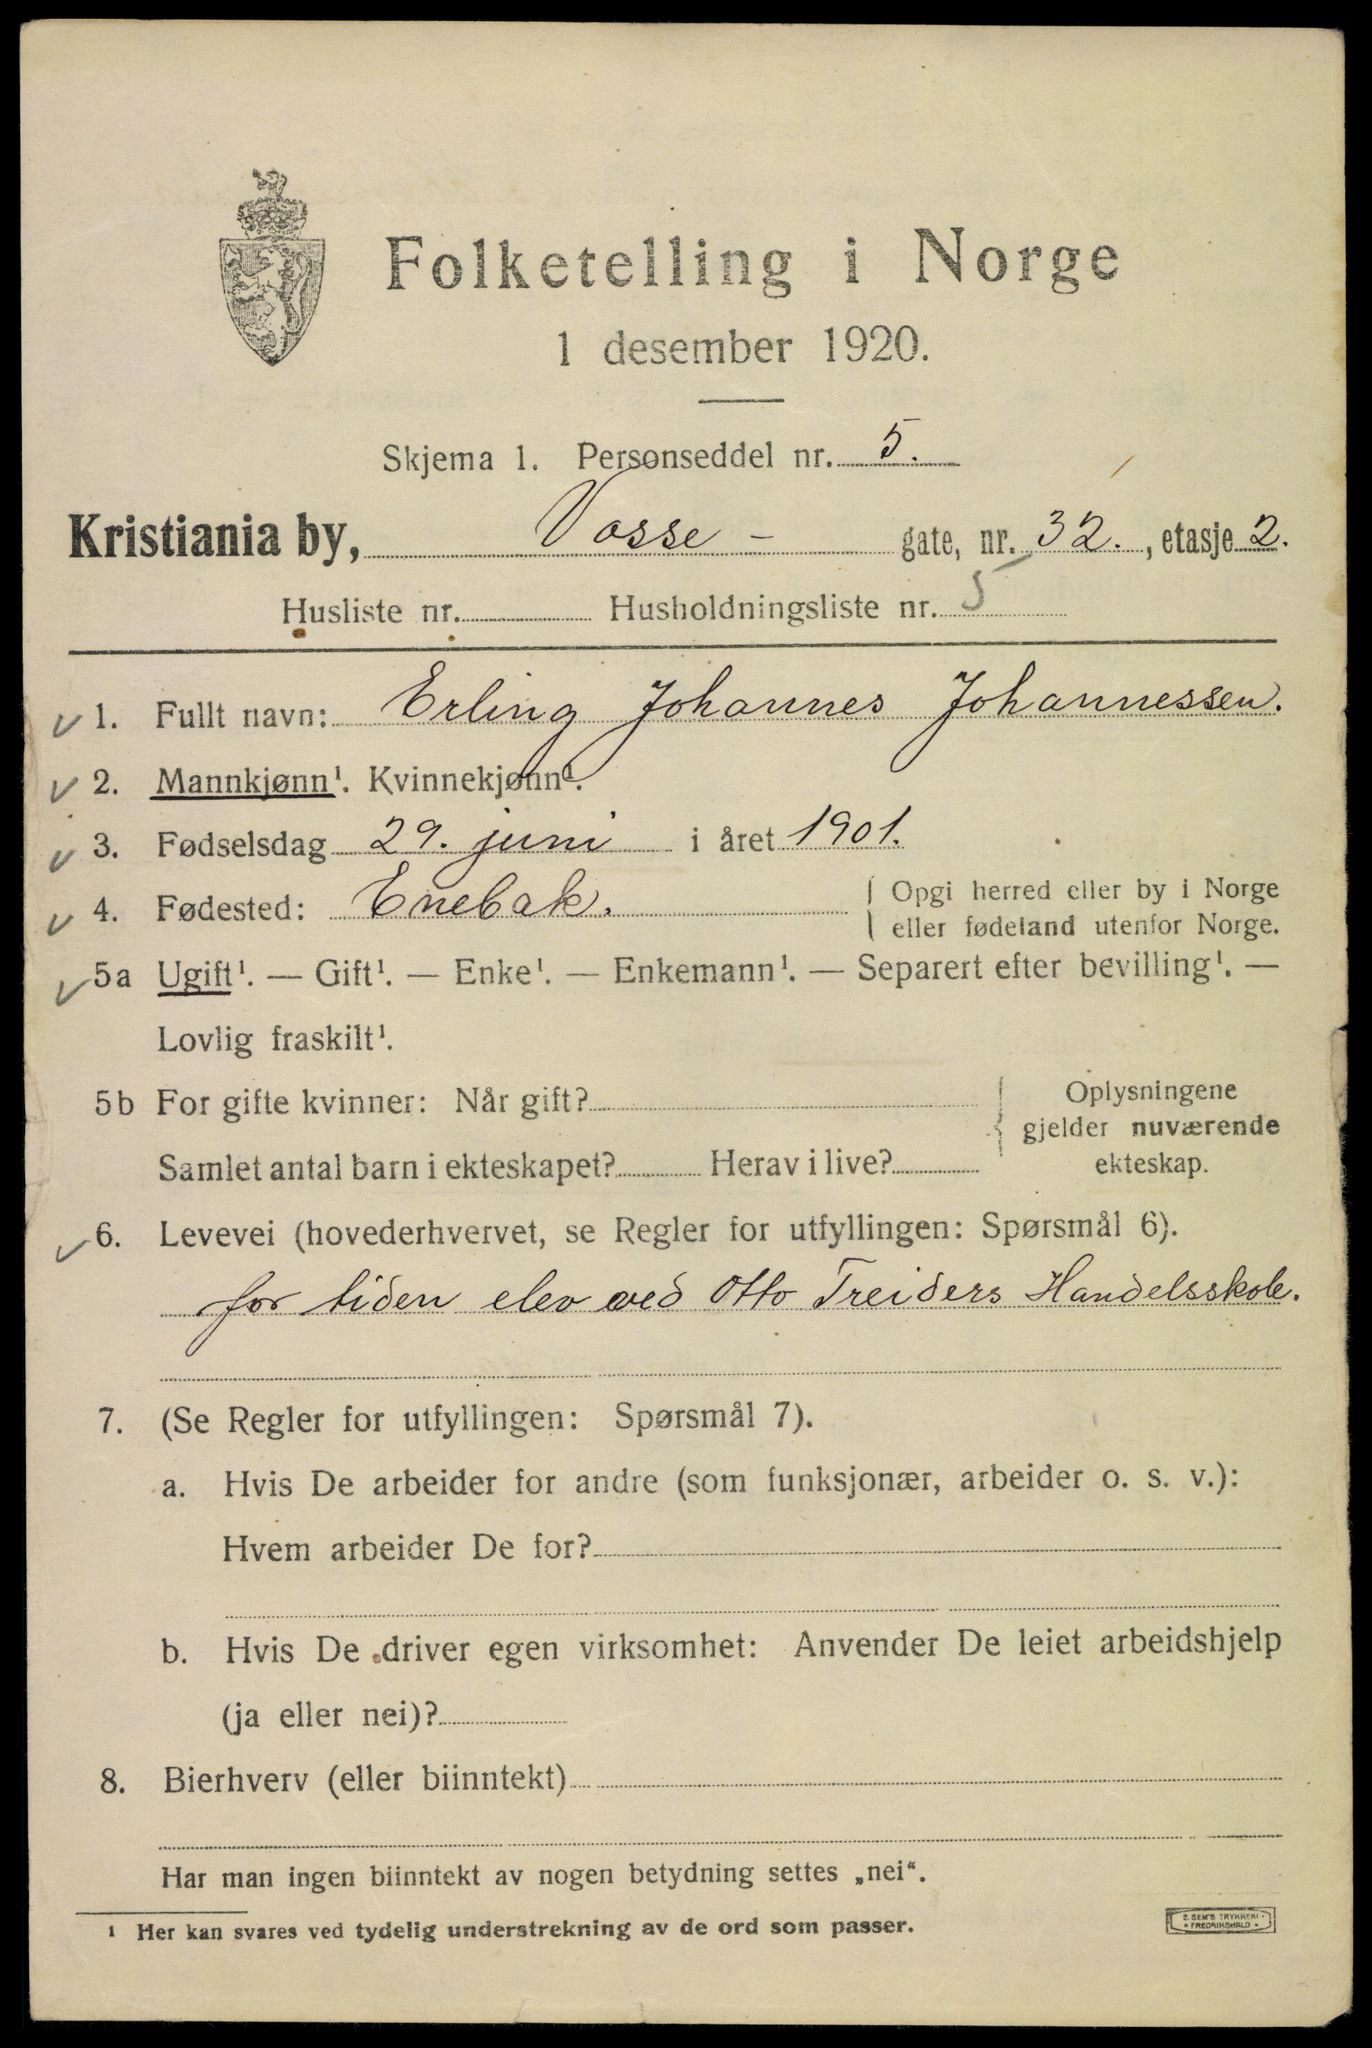 Folketelling i Norge
1 desember 1920.
Skjema 1. Personseddel nr. 5.
Kristiania by, Vosse - gate, nr. 32., etasje 2.
Husliste nr. Husholdningsliste nr. 5
1. Fullt navn: Erling Johannes Johannessen.
2. Mannkjønn¹. Kvinnekjønn¹.
3. Fødselsdag 29. juni i året 1901.
4. Fødested: Enebak. Opgi herred eller by i Norge
eller fødeland utenfor Norge.
5a Ugift¹. — Gift¹. — Enke¹. — Enkemann¹. — Separert efter bevilling¹. —
Lovlig fraskilt¹.
5b For gifte kvinner: Når gift?
Samlet antal barn i ekteskapet? Herav i live?
Oplysningene
gjelder nuværende
ekteskap.
6. Levevei (hovederhvervet, se Regler for utfyllingen: Spørsmål 6).
for tiden elev ved Otto Treiders Handelsskole.
7. (Se Regler for utfyllingen: Spørsmål 7).
a. Hvis De arbeider for andre (som funksjonær, arbeider o. s. v.):
Hvem arbeider De for?
b. Hvis De driver egen virksomhet: Anvender De leiet arbeidshjelp
(ja eller nei)?
8. Bierhverv (eller biinntekt)
Har man ingen biinntekt av nogen betydning settes „nei“.
¹ Her kan svares ved tydelig understrekning av de ord som passer.
E. SEM'S TRYKKERI
FREDRIKSHALD